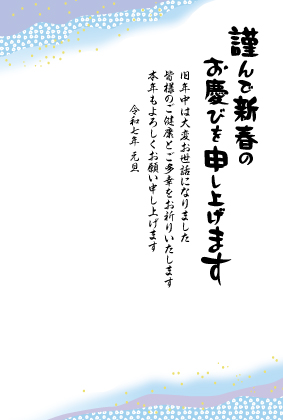 謹んで新春の
お慶びを申し上げます
旧年中は大変お世話になりました
皆様のご健康とご多幸をお祈りいたします
本年もよろしくお願い申し上げます
令和七年 元旦